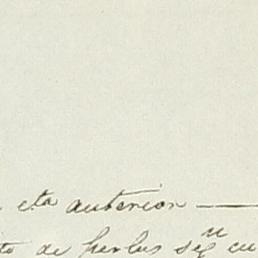 cta anterior —
to de perlas segn cu